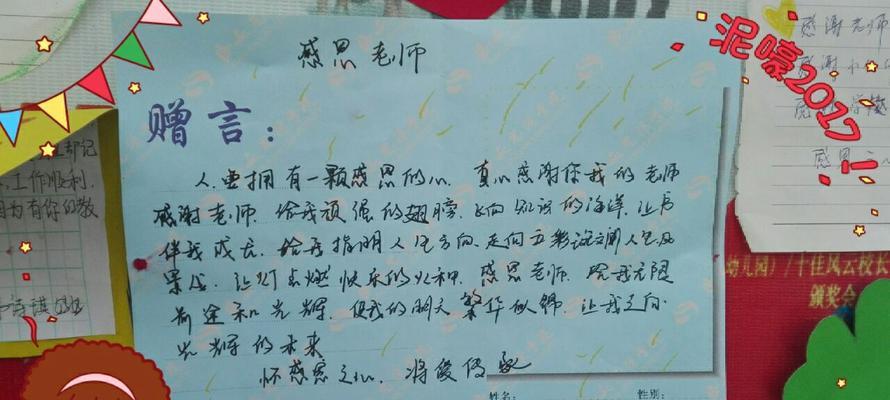 感恩老师
赠言：
人要拥有一颗感恩的心，真心感谢你我的老师
感谢老师，给我顽强的翅膀，飞向知识的海洋，让书
伴我成长，给我指明人生方向，走向五彩斑斓人生风
景线，让灯点燃快乐的火种，感恩老师，给我无限
前途和光辉，使我的明天繁华似锦，让我走向
光辉的未来
怀感恩之心，将爱传承
姓名： 性别：
泥嚎2017
感谢老师
感谢
感恩
工作顺利
因为有你的教
幼儿园）/十佳风云校长
颁奖会